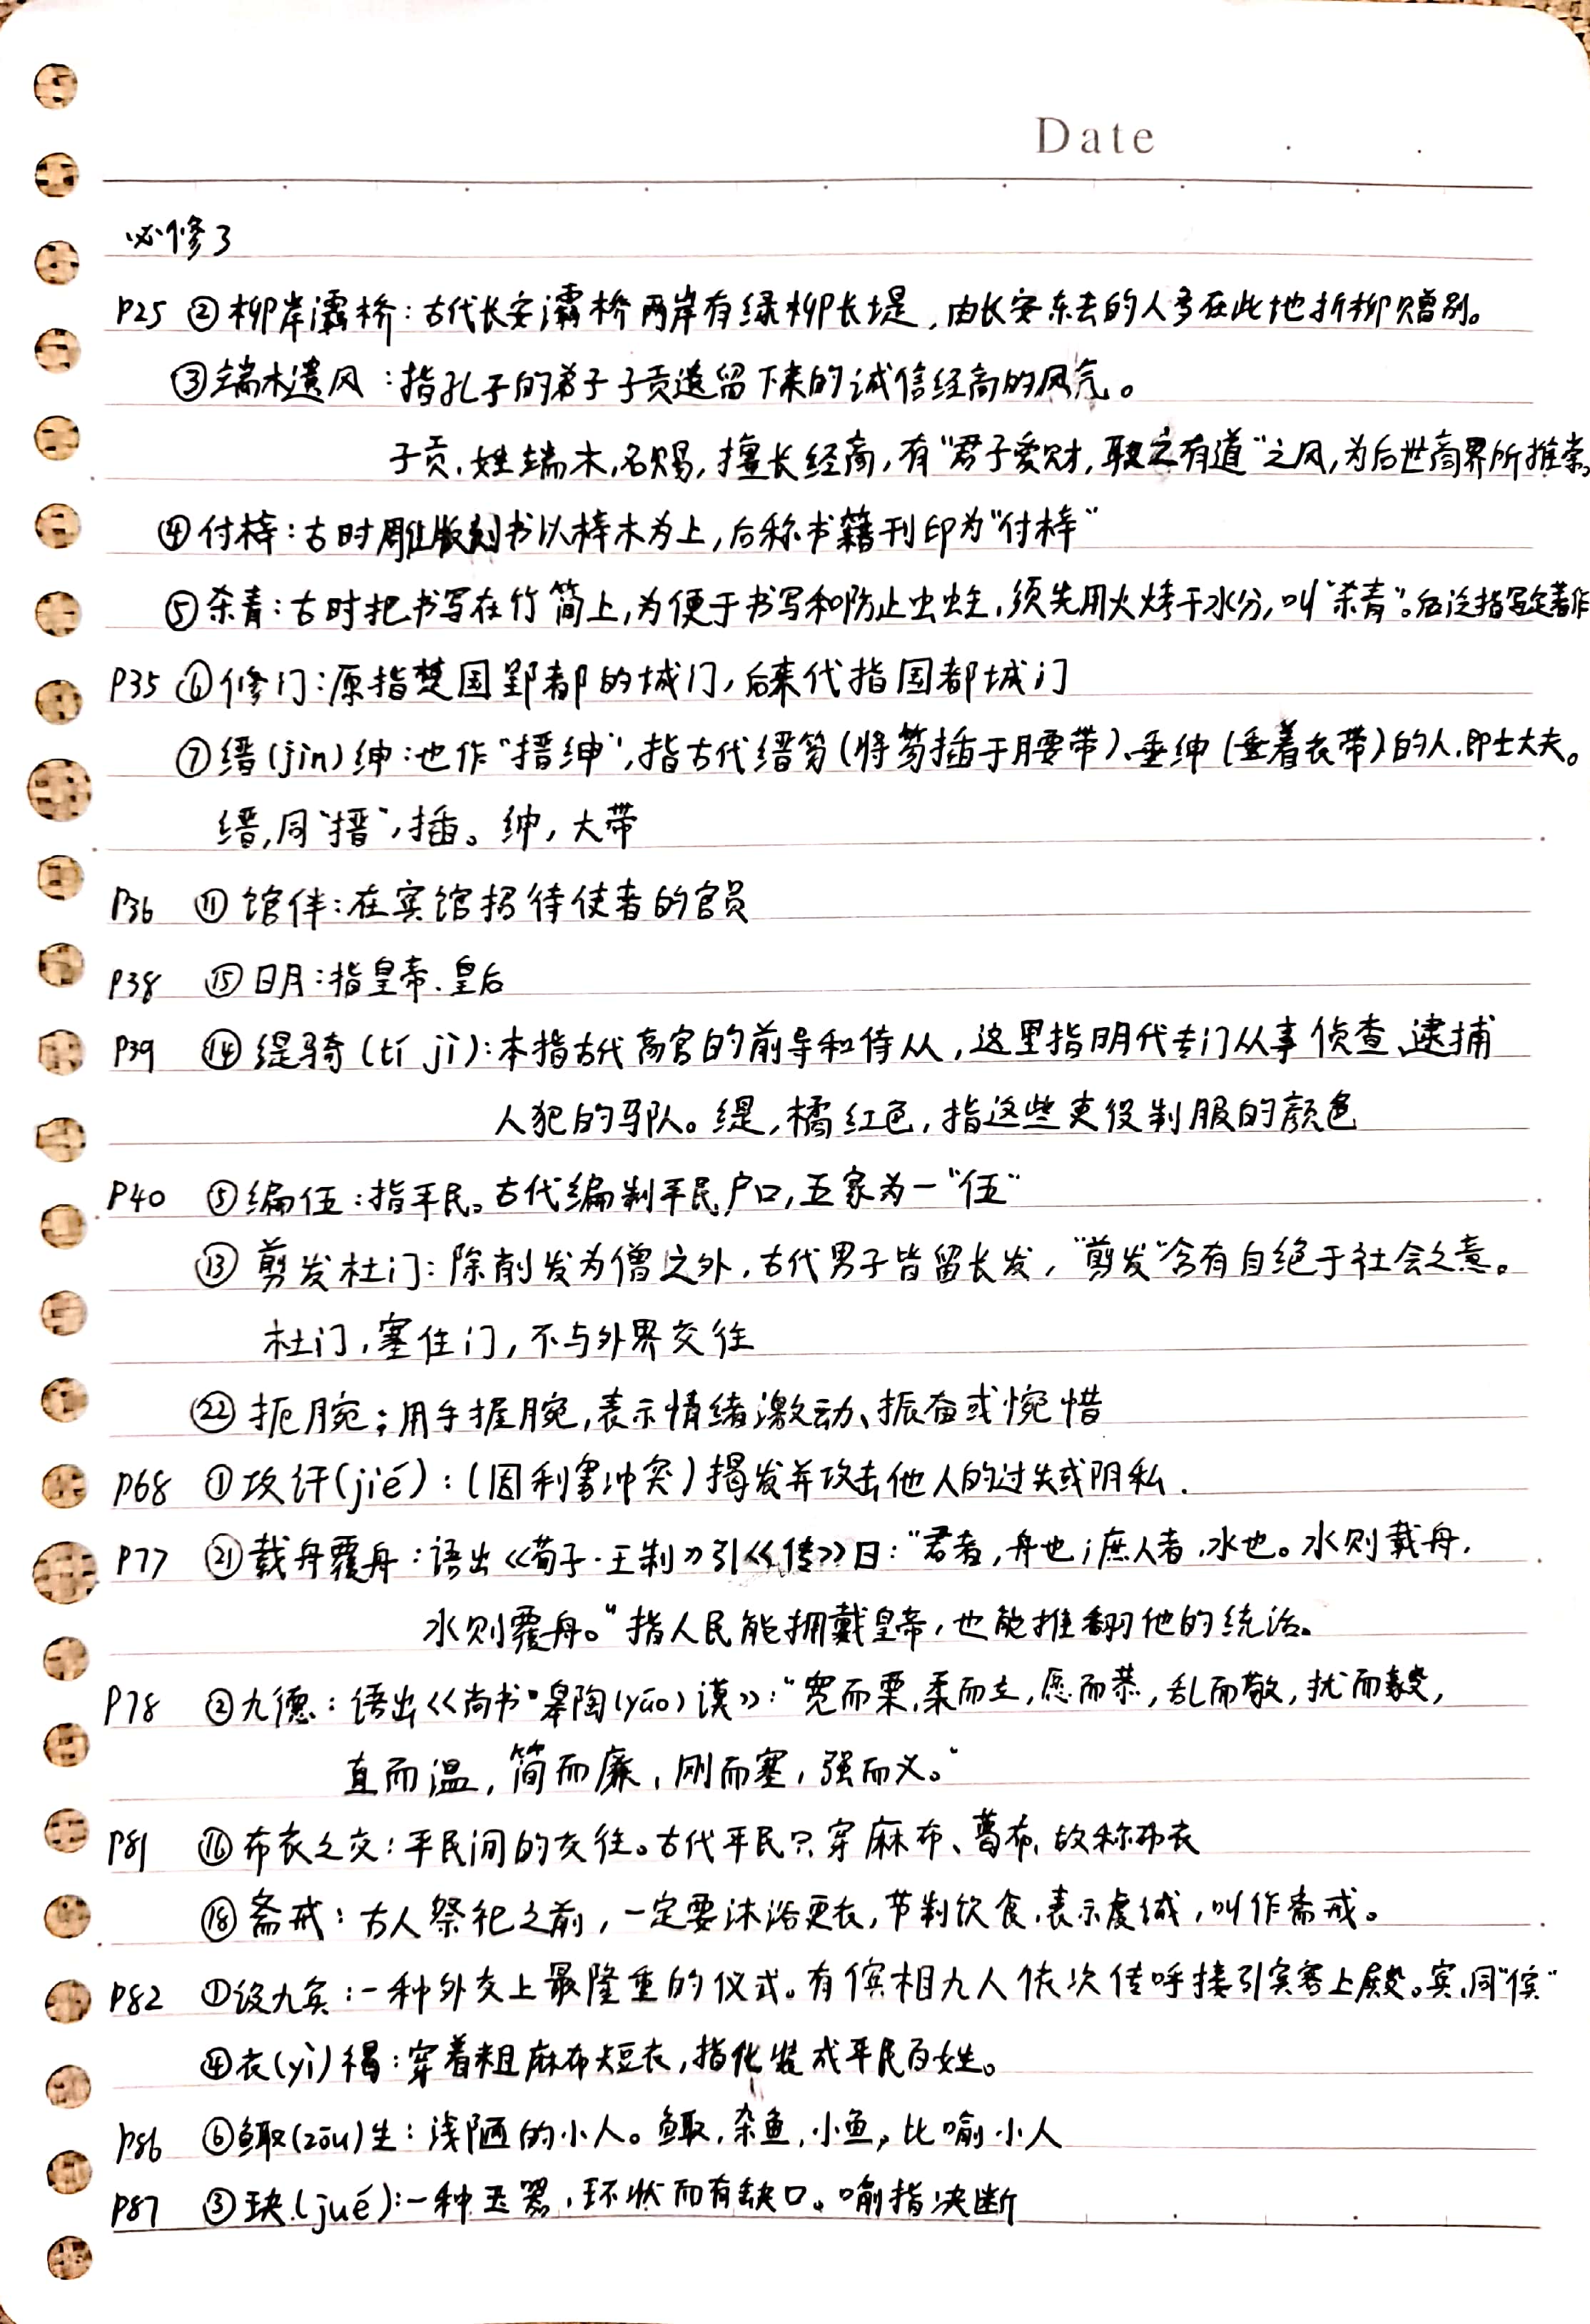 Date
必修3
P25 ②柳岸灞桥：古代长安灞桥两岸有绿柳长堤，由长安东去的人多在此地折柳赠别。
③端木遗风：指孔子的弟子子贡遗留下来的诚信经商的风气。
子贡，姓端木，名赐，擅长经商，有“君子爱财，取之有道”之风，为后世商界所推崇。
④付梓：古时雕版刻书以梓木为上，后称书籍刊印为“付梓”
⑤杀青：古时把书写在竹简上，为便于书写和防止虫蛀，须先用火烤干水分，叫“杀青”。后泛指写定著作
P35 ⑥修门：原指楚国郢都的城门，后来代指国都城门
⑦缙(jìn)绅：也作“搢绅”，指古代缙笏(将笏插于腰带)、垂绅(垂着衣带)的人，即士大夫。
缙，同“搢”，插。绅，大带
P36 ⑪馆伴：在宾馆招待使者的官员
P38 ⑮日月：指皇帝、皇后
P39 ⑭缇骑(tí jì)：本指古代高官的前导和侍从，这里指明代专门从事侦查、逮捕
人犯的马队。缇，橘红色，指这些吏役制服的颜色
P40 ⑤编伍：指平民。古代编制平民户口，五家为一“伍”
⑬剪发杜门：除削发为僧之外，古代男子皆留长发，“剪发”含有自绝于社会之意。
杜门，塞住门，不与外界交往
㉒扼腕；用手握腕，表示情绪激动、振奋或惋惜
P68 ①攻讦(jié)：(因利害冲突)揭发并攻击他人的过失或阴私.
P77 ㉑载舟覆舟：语出《荀子·王制》引《传》曰：“君者，舟也；庶人者，水也。水则载舟，
水则覆舟。”指人民能拥戴皇帝，也能推翻他的统治。
P78 ②九德：语出《尚书·皋陶(yáo)谟》：“宽而栗，柔而立，愿而恭，乱而敬，扰而毅，
直而温，简而廉，刚而塞，强而义。”
P81 ⑯布衣之交：平民间的交往。古代平民只穿麻布、葛布，故称布衣
⑱斋戒：古人祭祀之前，一定要沐浴更衣，节制饮食，表示虔诚，叫作斋戒。
P82 ①设九宾：一种外交上最隆重的仪式。有傧相九人依次传呼接引宾客上殿。宾，同“傧”
④衣(yì)褐：穿着粗麻布短衣，指化装成平民百姓。
P86 ⑥鲰(zōu)生：浅陋的小人。鲰，杂鱼，小鱼，比喻小人
P87 ③玦(jué)：一种玉器，环状而有缺口。喻指决断